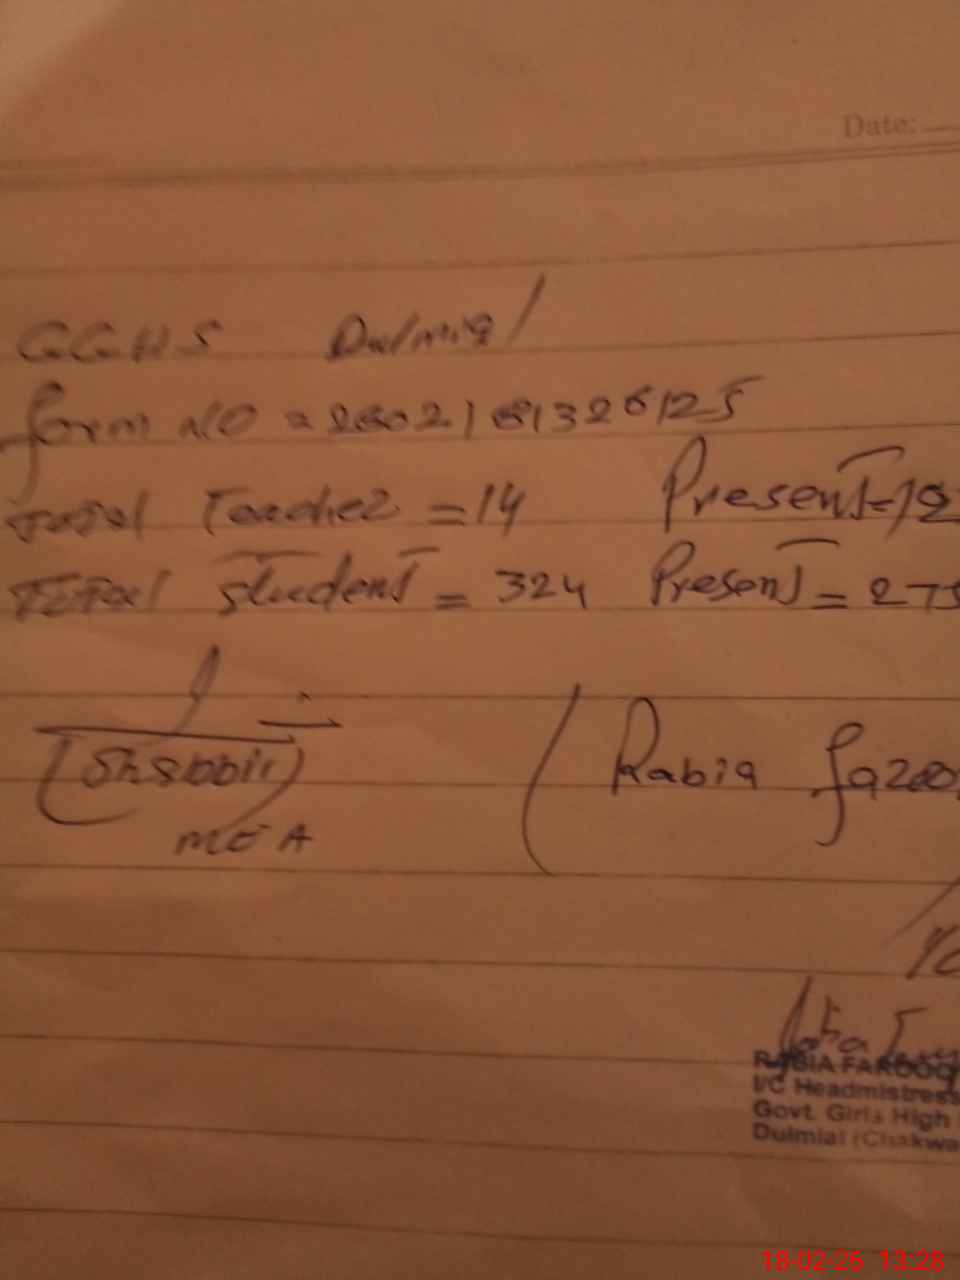 Date:
GGHS Dulmial
form NO = 2602181326125
Total Teacher = 14 Present = 12
Total student = 324 Present = 275
(Shabbir) (Rabia
MEA
RABIA FAROOQ
I/C Headmistress
Govt. Girls High
Dulmial (Chakwa
18-02-26 13:28